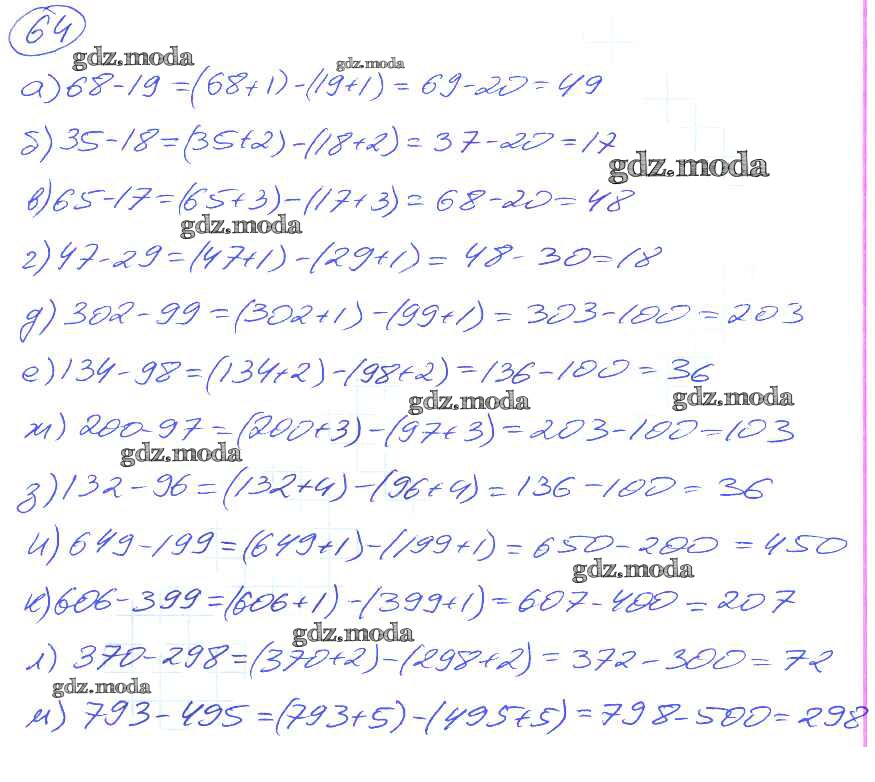 64
gdz.moda
gdz.moda
а) 68-19=(68+1)-(19+1)=69-20=49
б) 35-18=(35+2)-(18+2)=37-20=17
gdz.moda
в) 65-17=(65+3)-(17+3)=68-20=48
gdz.moda
г) 47-29=(47+1)-(29+1)=48-30=18
д) 302-99=(302+1)-(99+1)=303-100=203
е) 134-98=(134+2)-(98+2)=136-100=36
gdz.moda
gdz.moda
ж) 200-97=(200+3)-(97+3)=203-100=103
gdz.moda
з) 132-96=(132+4)-(96+4)=136-100=36
и) 649-199=(649+1)-(199+1)=650-200=450
gdz.moda
к) 606-399=(606+1)-(399+1)=607-400=207
gdz.moda
л) 370-298=(370+2)-(298+2)=372-300=72
gdz.moda
м) 793-495=(793+5)-(495+5)=798-500=298